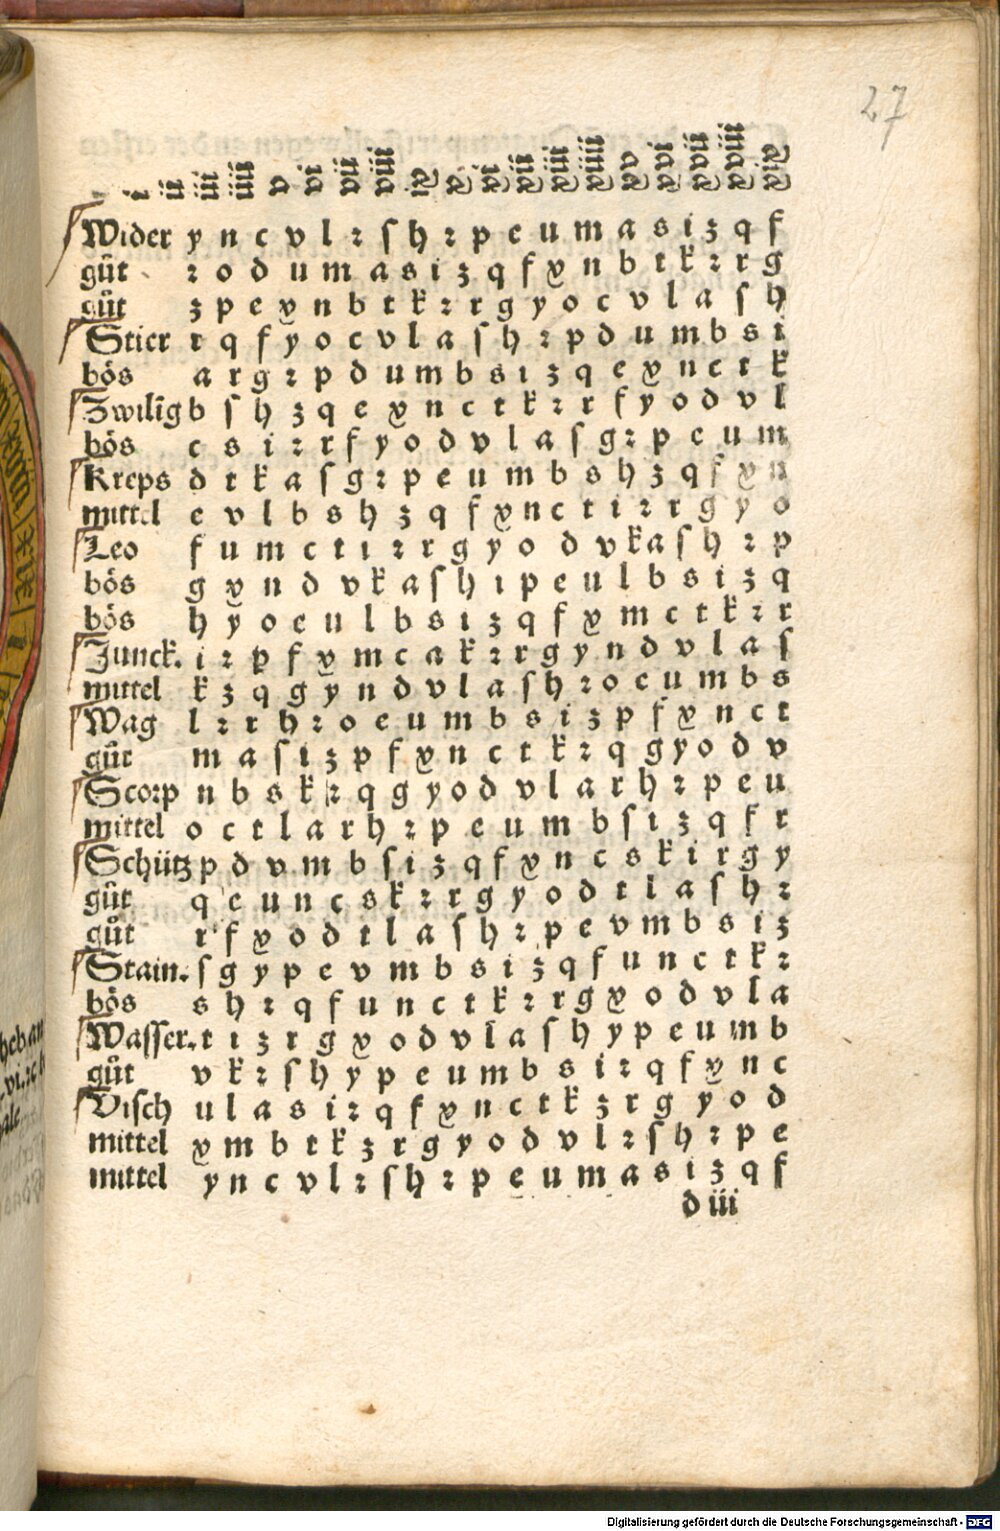 27
i ii iii iiii v vi vii viii ix x xi xii xiii xiiii xv xvi xvii xviii xix
Wider y n c v l ꝛ ſ h ꝛ p e u m a s i z q f
gůt ꝛ o d u m a s i z q f x n b t k ꝛ r g
gůt z p e x n b t k ꝛ r g y o c v l a ſ h
Stier r q f y o c v l a ſ h ꝛ p d u m b s i
bös a r g ꝛ p d u m b s i z q e x n c t k
Zwilig b ſ h z q e x n c t k ꝛ r f y o d v l
bös c s i ꝛ r f y o d v l a ſ g ꝛ p e u m
Kreps d t k a ſ g ꝛ p e u m b s h z q f x n
mittel e v l b s h z q f x n c t i ꝛ r g y o
Leo f u m c t i ꝛ r g y o d v k a ſ h ꝛ p
bös g x n d v k a ſ h ꝛ p e u l b s i z q
bös h y o e u l b s i z q f x m c t k ꝛ r
Junck. i ꝛ p f x m c a k ꝛ r g y n d v l a ſ
mittel k z q g y n d v l a ſ h ꝛ o e u m b s
Wag l ꝛ r h ꝛ o e u m b s i z p f x n c t
gůt m a s i z p f x n c t k ꝛ q g y o d v
Scorp n b s k ꝛ q g y o d v l a r h ꝛ p e u
mittel o c t l a r h ꝛ p e u m b ſ i z q f r
Schütz p d v m b s i z q f x n c s k i r g y
gůt q e u n c s k ꝛ r g y o d t l a ſ h ꝛ
gůt r f x o d t l a ſ h ꝛ p e v m b s i z
Stain. ſ g y p e v m b s i z q f u n c t k ꝛ
bös s h ꝛ q f u n c t k ꝛ r g x o d v l a
Wasser. t i z r g x o d v l a ſ h y p e u m b
gůt v k ꝛ ſ h y p e u m b s i ꝛ q f x n c
Visch u l a s i ꝛ q f x n c t k z r g y o d
mittel x m b t k z r g y o d v l ꝛ ſ h ꝛ p e
mittel y n c v l ꝛ ſ h ꝛ p e u m a s i z q f
d iii
Digitalisierung gefördert durch die Deutsche Forschungsgemeinschaft - DFG